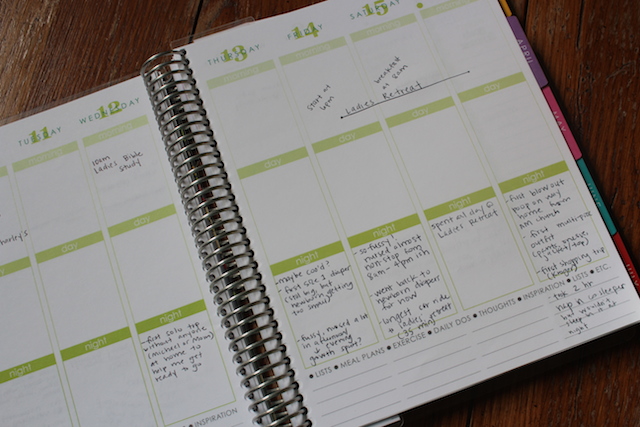 TUESDAY 11
WEDNESDAY 12
THURSDAY 13
FRIDAY 14
SATURDAY 15
morning
10am
Ladies Bible
Study
start at
6pm
breakfast
at 8am
Ladies Retreat
day
day
day
day
day
day
night
night
night
night
night
night
- first solo trip
without anyone
(Michael or Mom)
at home to
help me get
ready to go
- maybe cold?
- first size 1 diaper
(still big, but
newborn getting
too small)
- fussy, nursed a lot
in afternoon
& evening
growth spurt?
- so fussy!
nursed almost
non-stop from
8am - 4pm ish
- went back to
newborn diaper
for now
- longest car ride
(ladies retreat
(35 min)
spent all day @
Ladies Retreat
- first blowout
poop on way
home from
church
- first multiple
outfit
- first shopping trip
(Kroger)
- took 2 hr
nap in co sleeper
INSPIRATION
• LISTS • MEAL PLANS • EXERCISE • DAILY DOS • THOUGHTS • INSPIRATION • LISTS • ETC.
APRIL
MAY